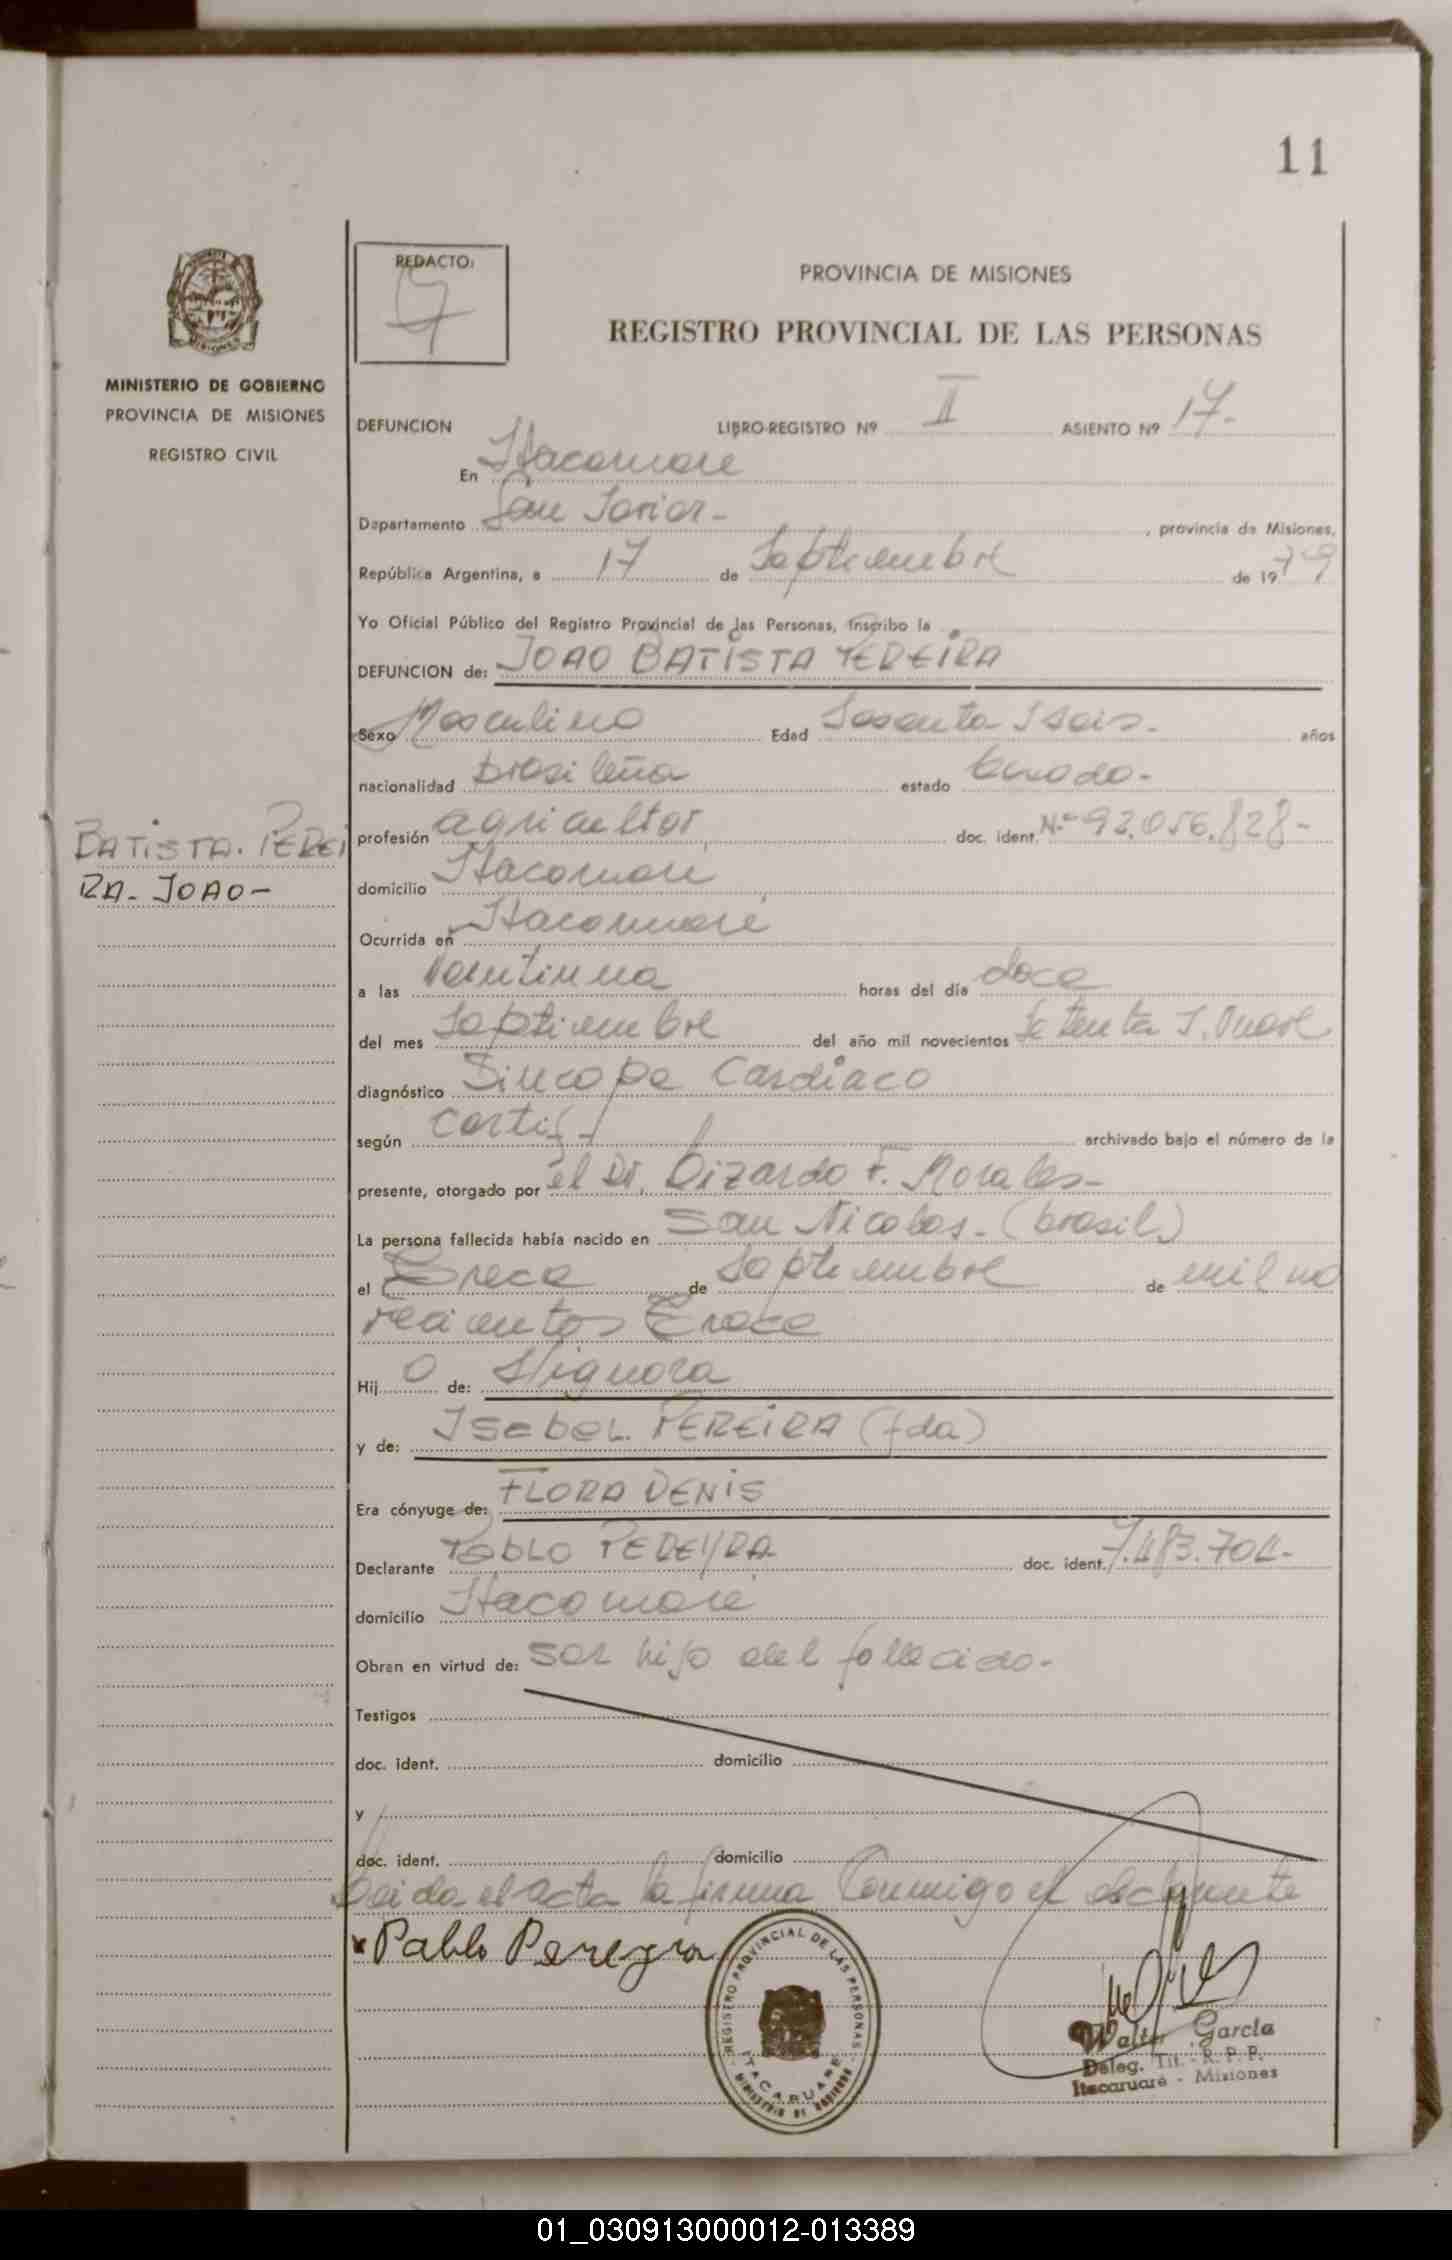 11
REDACTO:
PROVINCIA DE MISIONES
REGISTRO PROVINCIAL DE LAS PERSONAS
MINISTERIO DE GOBIERNO
PROVINCIA DE MISIONES
REGISTRO CIVIL
DEFUNCION LIBRO-REGISTRO Nº II ASIENTO Nº 17-
En Itacaruaré
Departamento San Javier- , provincia de Misiones,
República Argentina, a 17 de Septiembre de 1979
Yo Oficial Público del Registro Provincial de las Personas, inscribo la
DEFUNCION de: JOAO BATISTA PEREIRA
Sexo Masculino Edad Sesenta I seis- años
nacionalidad brasileña estado Casado-
BATISTA. PEREI
RA- JOAO-
profesión agricultor doc. ident. Nº 92.056.828-
domicilio Itacaruaré
Ocurrida en Itacaruaré
a las Veintiuna horas del día doce
del mes Septiembre del año mil novecientos Setenta I. Nueve
diagnóstico Sincope Cardiaco
según certif- archivado bajo el número de la
presente, otorgado por el Dr. Lizardo F. Morales-
La persona fallecida había nacido en San Nicolas- (brasil)
el Trece de Septiembre de mil no
vecientos Trece
Hij o de:
y de: Isabel PEREIRA (fda)
Era cónyuge de: FLORA DENIS
Declarante Pablo PEREYRA- doc. ident. 7.483.701-
domicilio Itacaruaré
Obran en virtud de: ser hijo del fallecido-
Testigos
doc. ident. domicilio
y
doc. ident. domicilio
Leida el acta la firma Conmigo el
Pablo Pereyra
REGISTRO PROVINCIAL DE LAS PERSONAS
ITACARUARE
MINISTERIO DE GOBIERNO
Walter García
Deleg. Tit. - R. P. P.
Itacaruaré - Misiones
01_030913000012-013389